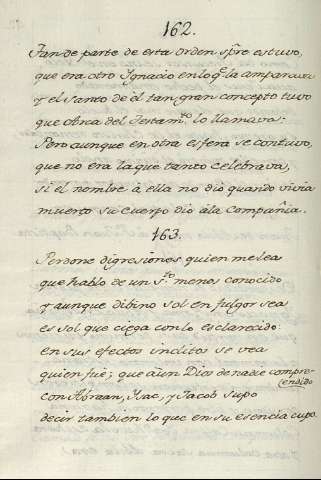 162.
Tan de parte de esta Orden spre estuvo,
que era otro Ygnacio en lo q.e la amparava
y el Santo de èl tan gran concepto tuvo
que Arca del Testam.to lo llamava:
Pero aunque en otra esfera se contuvo,
que no era la que tanto celebrava,
si el nombre à ella no diò quando vivia
muerto su cuerpo diò àla Compañia.
163.
Perdone digresiònes quien me lea
que hablo de un S.to menos conocido
y aunque dibino sol en fulgor sea
es sol que ciega con lo esclarecido:
en sus efectos inclitos se vea
quien fuè; que àun Dios de nadie compre-
endido
con Abraan, Isac, y Jacob supo
decir tambien lo que en su esencia cupo.